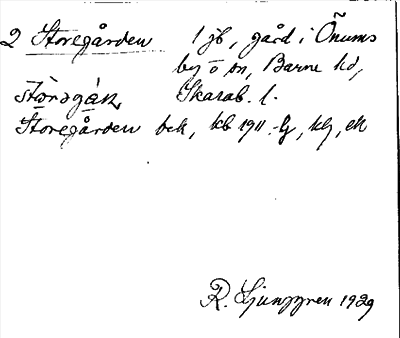 2 Storegården 1 jb, gård i Õnums
by o sn, Barne hd,
Skarab. l.
Storegården bek, kb 1911 -
R. Ljunggren 1929